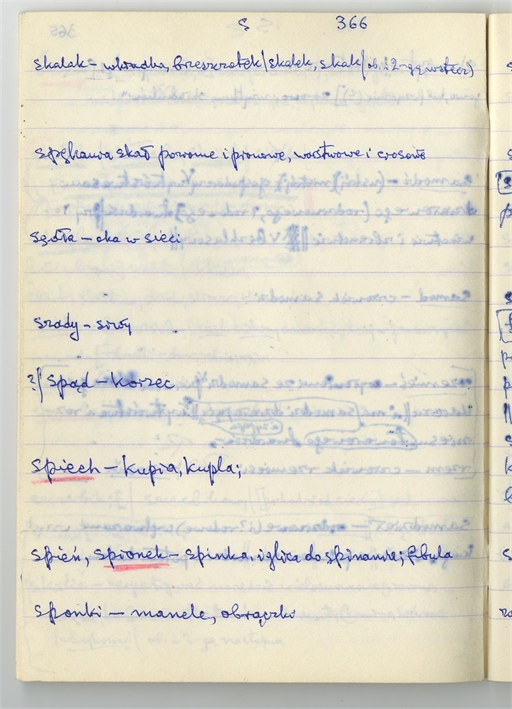 S 366
skalak - wkradka, brzeszczotek/skałek, skałk/
spękania skał poziome i pionowe, warstwowe i ciosowe
sgóła - oka w sieci
szady - siwy
?/ spąd - korzec
spiech - kupia, kupla;
spień, spionek - spinka, iglica do spinania; fibula
sponki - manele, obrączki